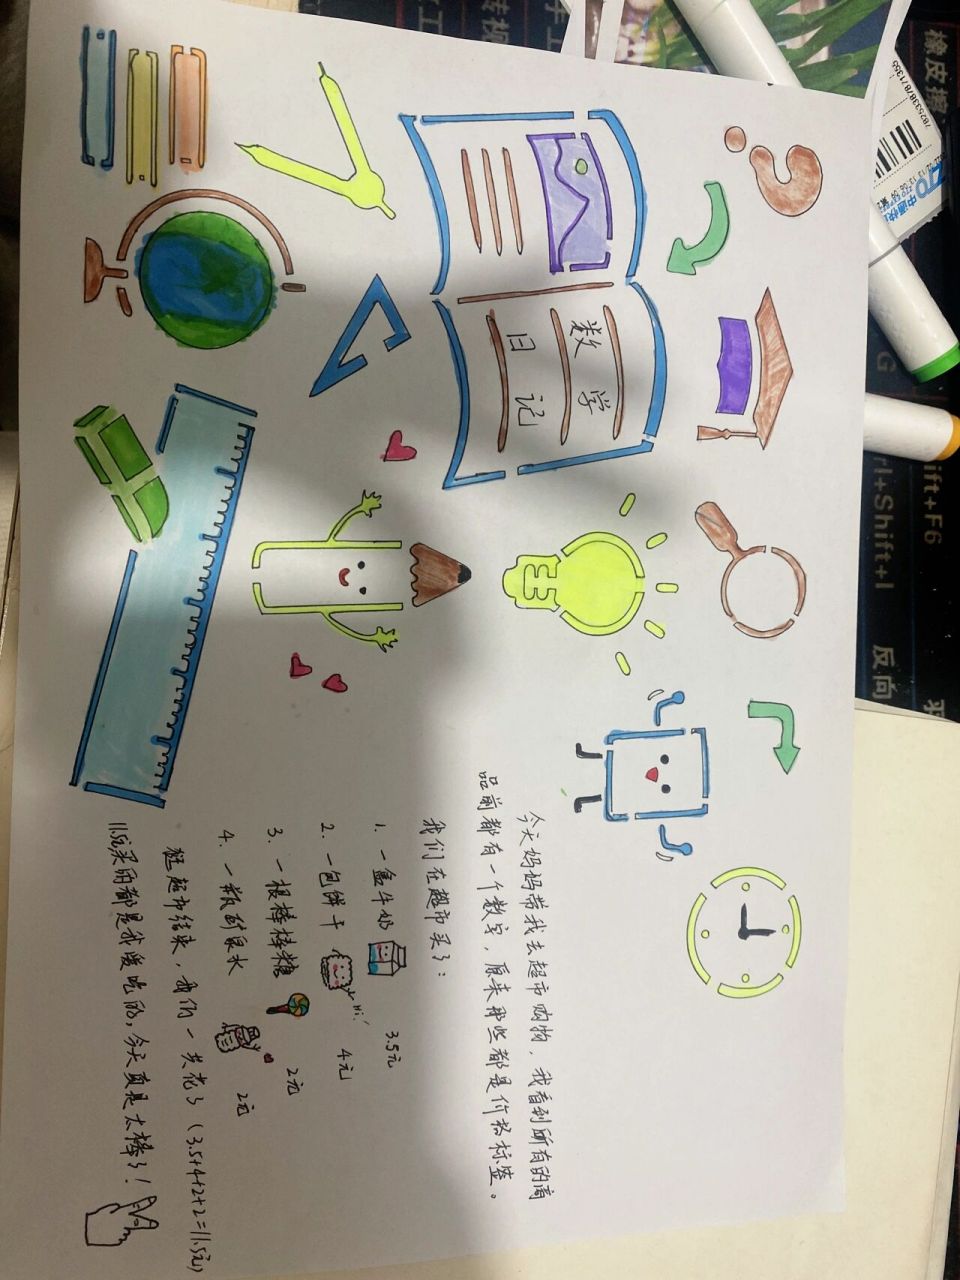 数学
日记
今天妈妈带我去超市购物，我看到所有的商
品前都有一个数字，原来那些都是价格标签。
我们在超市买了：
1. 一盒牛奶 3.5元
2. 一包饼干 Hi! 4元
3. 一根棒棒糖 2元
4. 一瓶矿泉水 2元
逛超市结束，我们一共花了（3.5+4+2+2=11.5元）
11.5元买的都是我爱吃的，今天真是太棒了！
橡皮擦
ift+F6
rl+Shift+I
反向
G
中通快